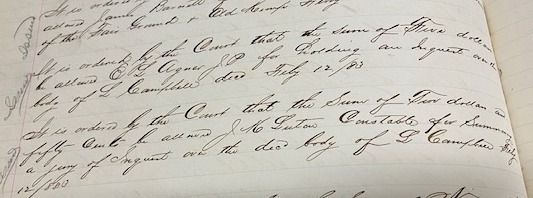 It is ordered
allowed James Barnett
of the Fair Ground & Old Kemps Ferry
It is ordered by the Court that the Sum of Five dollars
be allowed C L Agner J.P. for Holding an Inquest over the
body of L Campbell decd Feby 12/83
It is ordered by the Court that the Sum of Two dollars and
fifty Cents be allowed J M Luton Constable for Summoning
a jury of Inquest over the decd body of L Campbell Feby
12/83
Issued
Issued